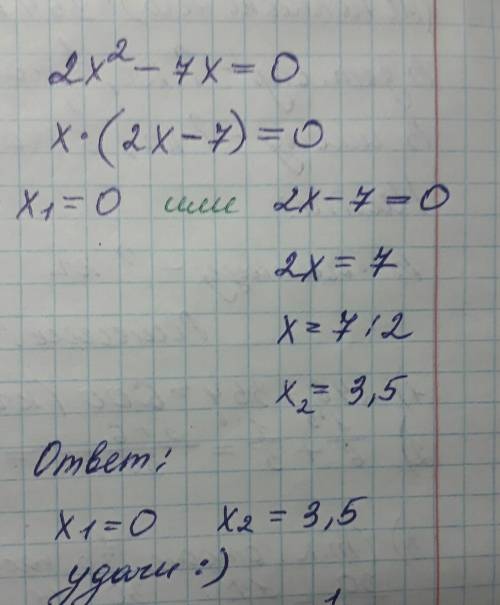 2x² - 7x = 0
x · (2x - 7) = 0
x₁ = 0 или 2x - 7 = 0
2x = 7
x = 7 : 2
x₂ = 3,5
Ответ:
x₁ = 0 x₂ = 3,5
удачи :)
1